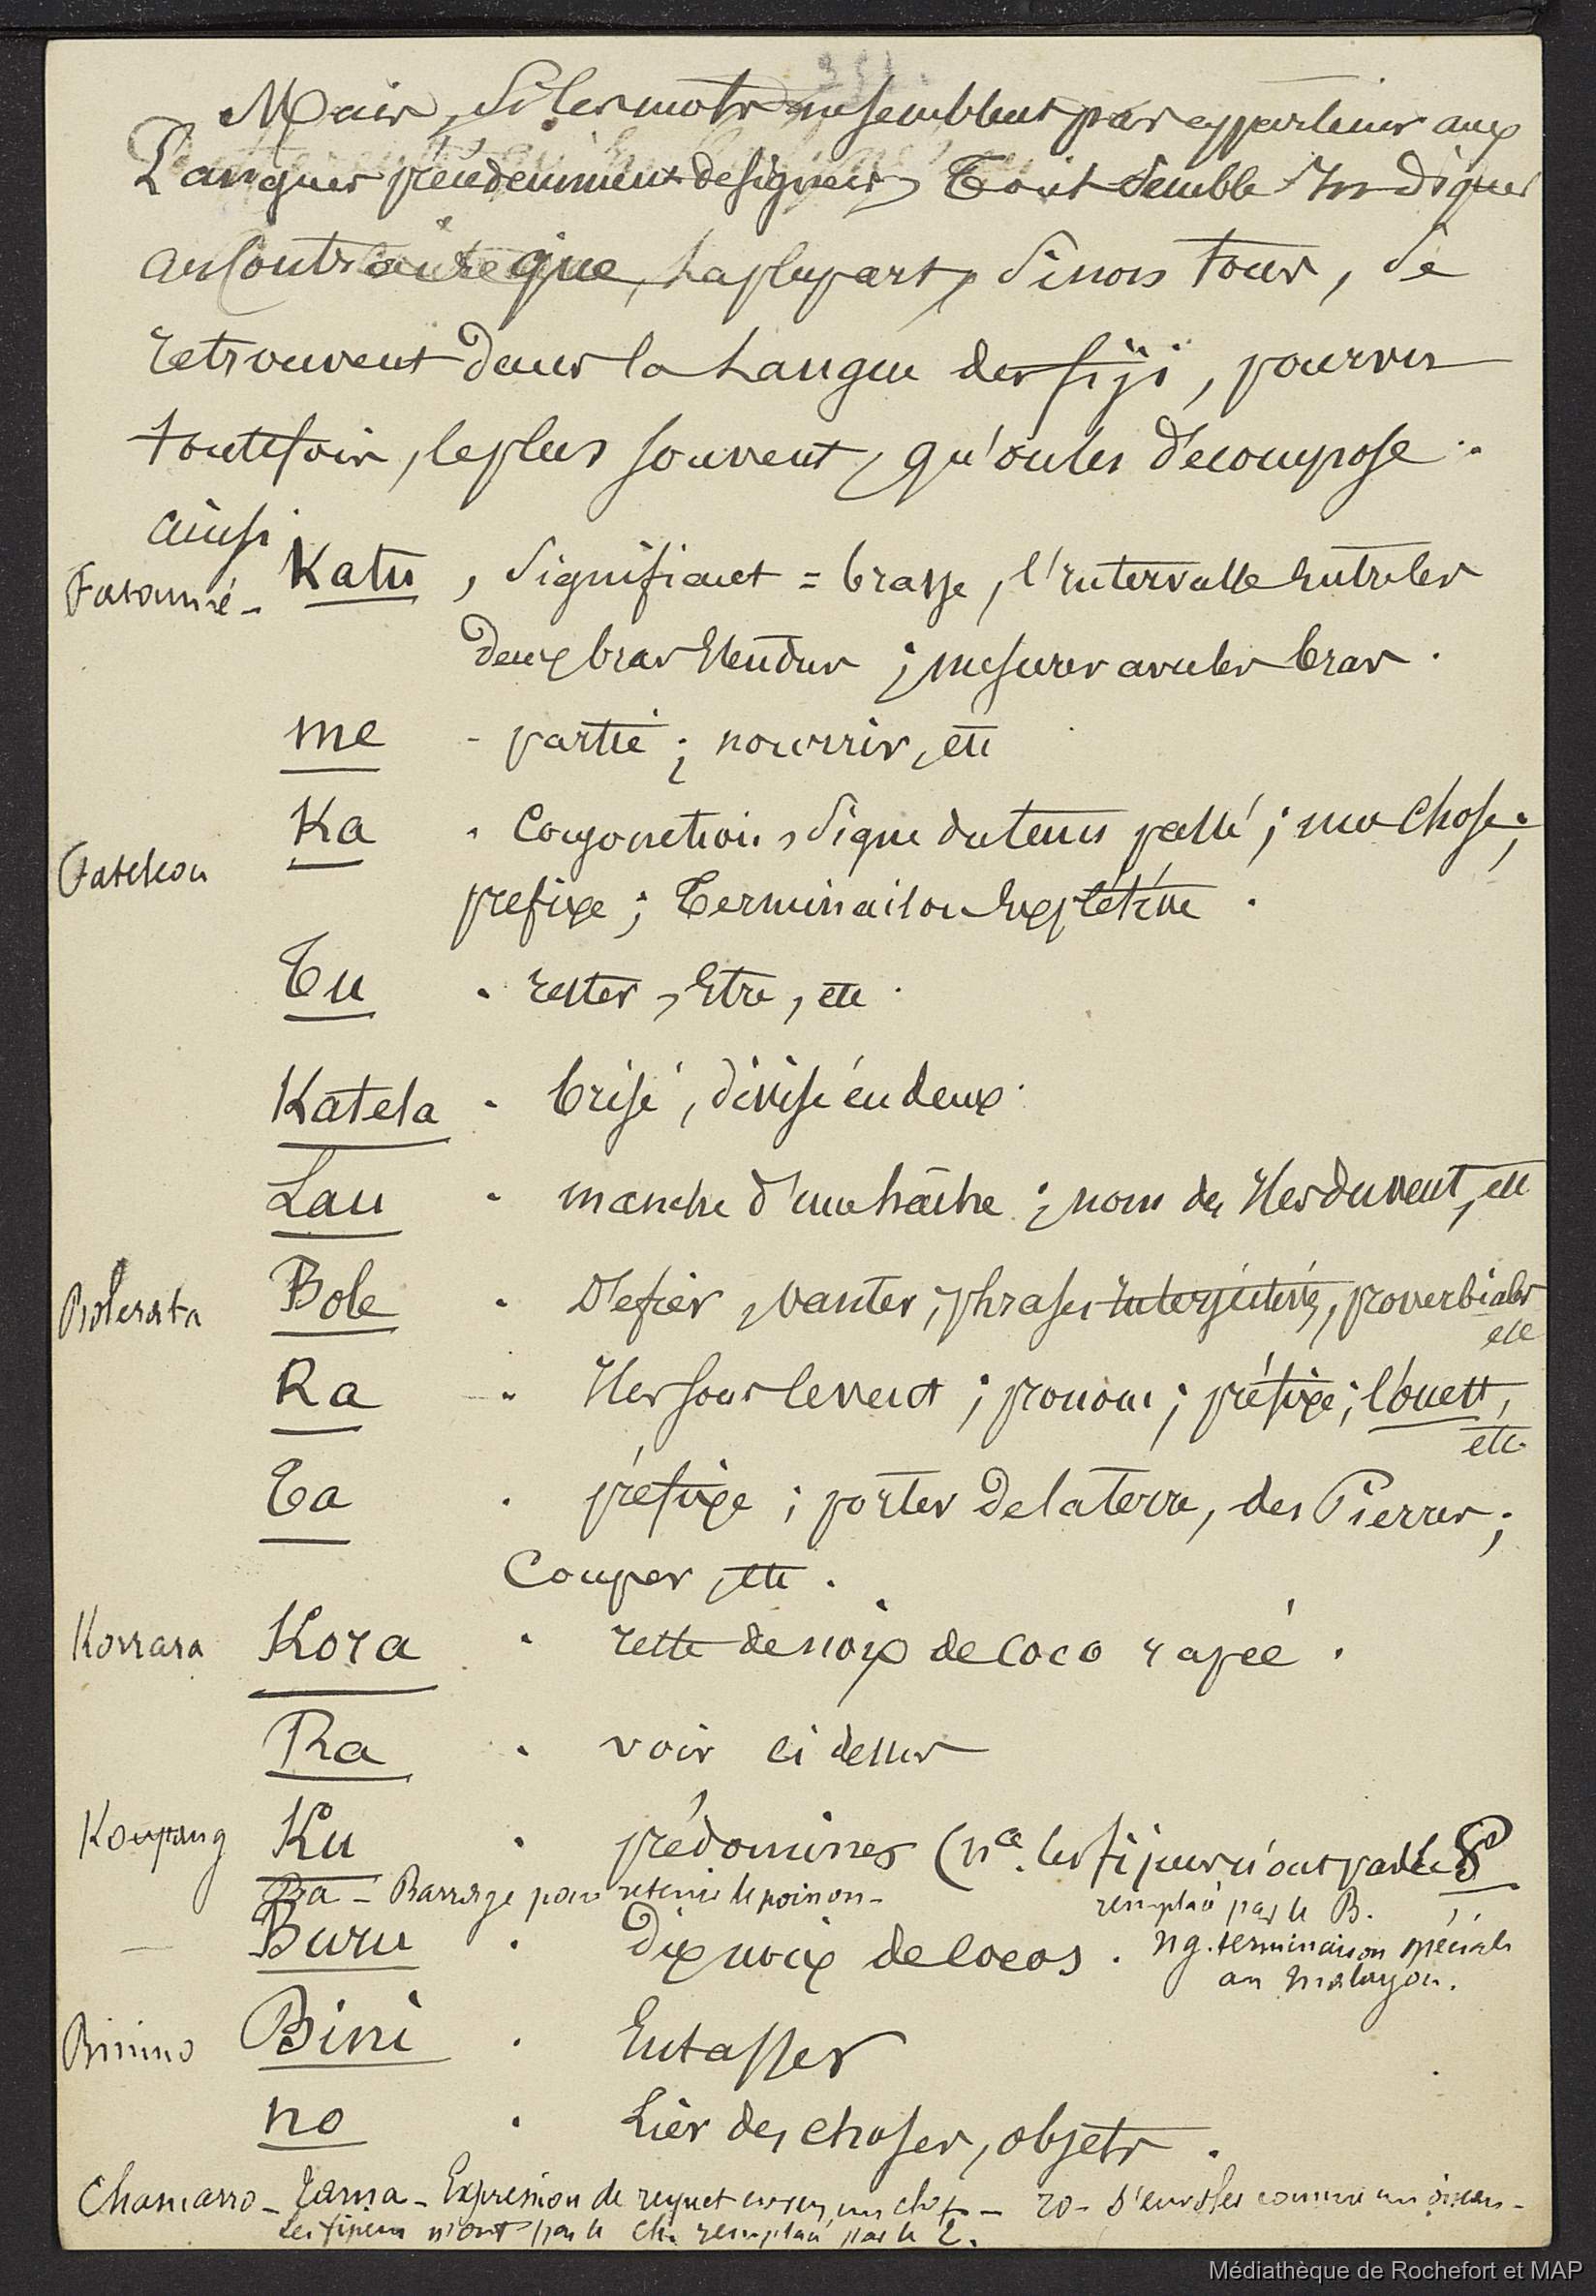 Mais, si les mots ne semblent pas appartenir aux
Langues précédemment designées, Tout semble Indiquer
au Contraire que, la plupart, sinon tous, se
retrouvent dans la Langue des fiji, pourvu
toutefois, le plus souvent, qu'on les décompose.
ainsi
Katu, signifiant = brasse, l'intervalle entre les
deux bras Etendus ; mesurer avec les bras.
me - partie ; nourrir, etc
Ka . Conjonction, signe du tems passé ; ma chose ;
Fatekou
prefixe ; Terminaison Explétive.
Tu . rester, Etre, etc.
Katela . brisé, divisé en deux.
Lau . manche d'une hâche ; nom des Iles du vent, etc
Bolerata Bole . Défier, vanter, phrases interjective, proverbiales
etc
Ra . Iles sous le vent ; pronom ; préfixe ; l'ouest,
etc.
Ta . préfixe ; porter De la terre, des Pierres ;
Couper, etc.
Korrara Kora . reste de noix de coco rapée.
Ra . voir ci dessus
Koupang Ku . prédominer (na. les fijiens n'ont pas le P
Ba - Barrage pour retenir le poisson -
remplacé par le B.
Buru . Dix noix de Cocos. ng. terminaison spéciale
au malayou.
Binino Bini . Entasser
no . Lier des choses, objets.
Chamarro - Tama - Expression de respect envers un chef - ro - s'envoler comme un oiseau -
Les fijiens n'ont pas le Ch. remplacé par le T.
Médiathèque de Rochefort et MAP